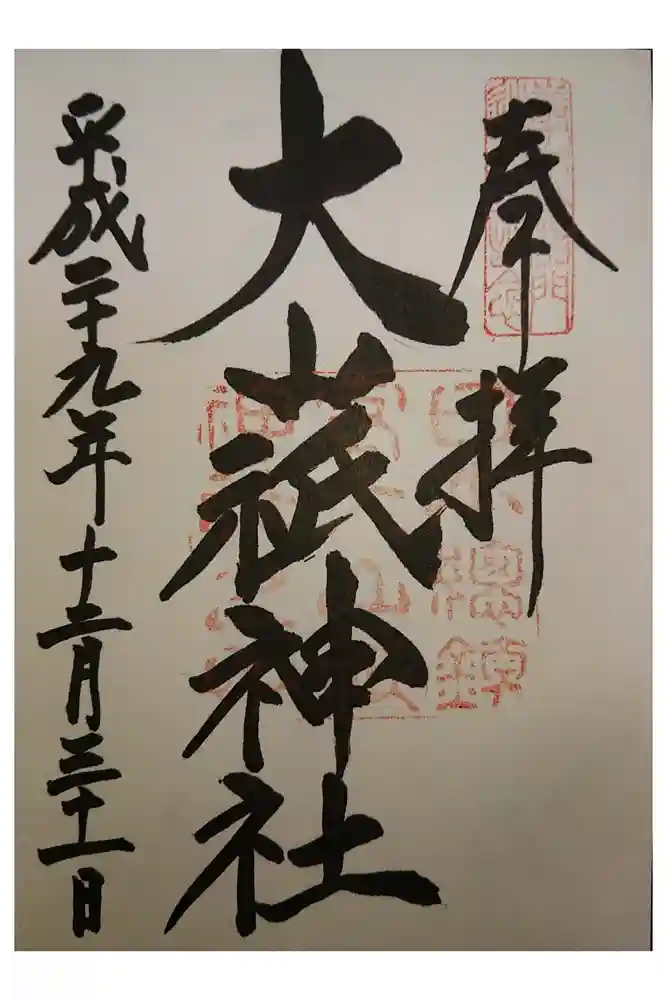 奉拝
大山祇神社
平成二十九年十二月三十一日